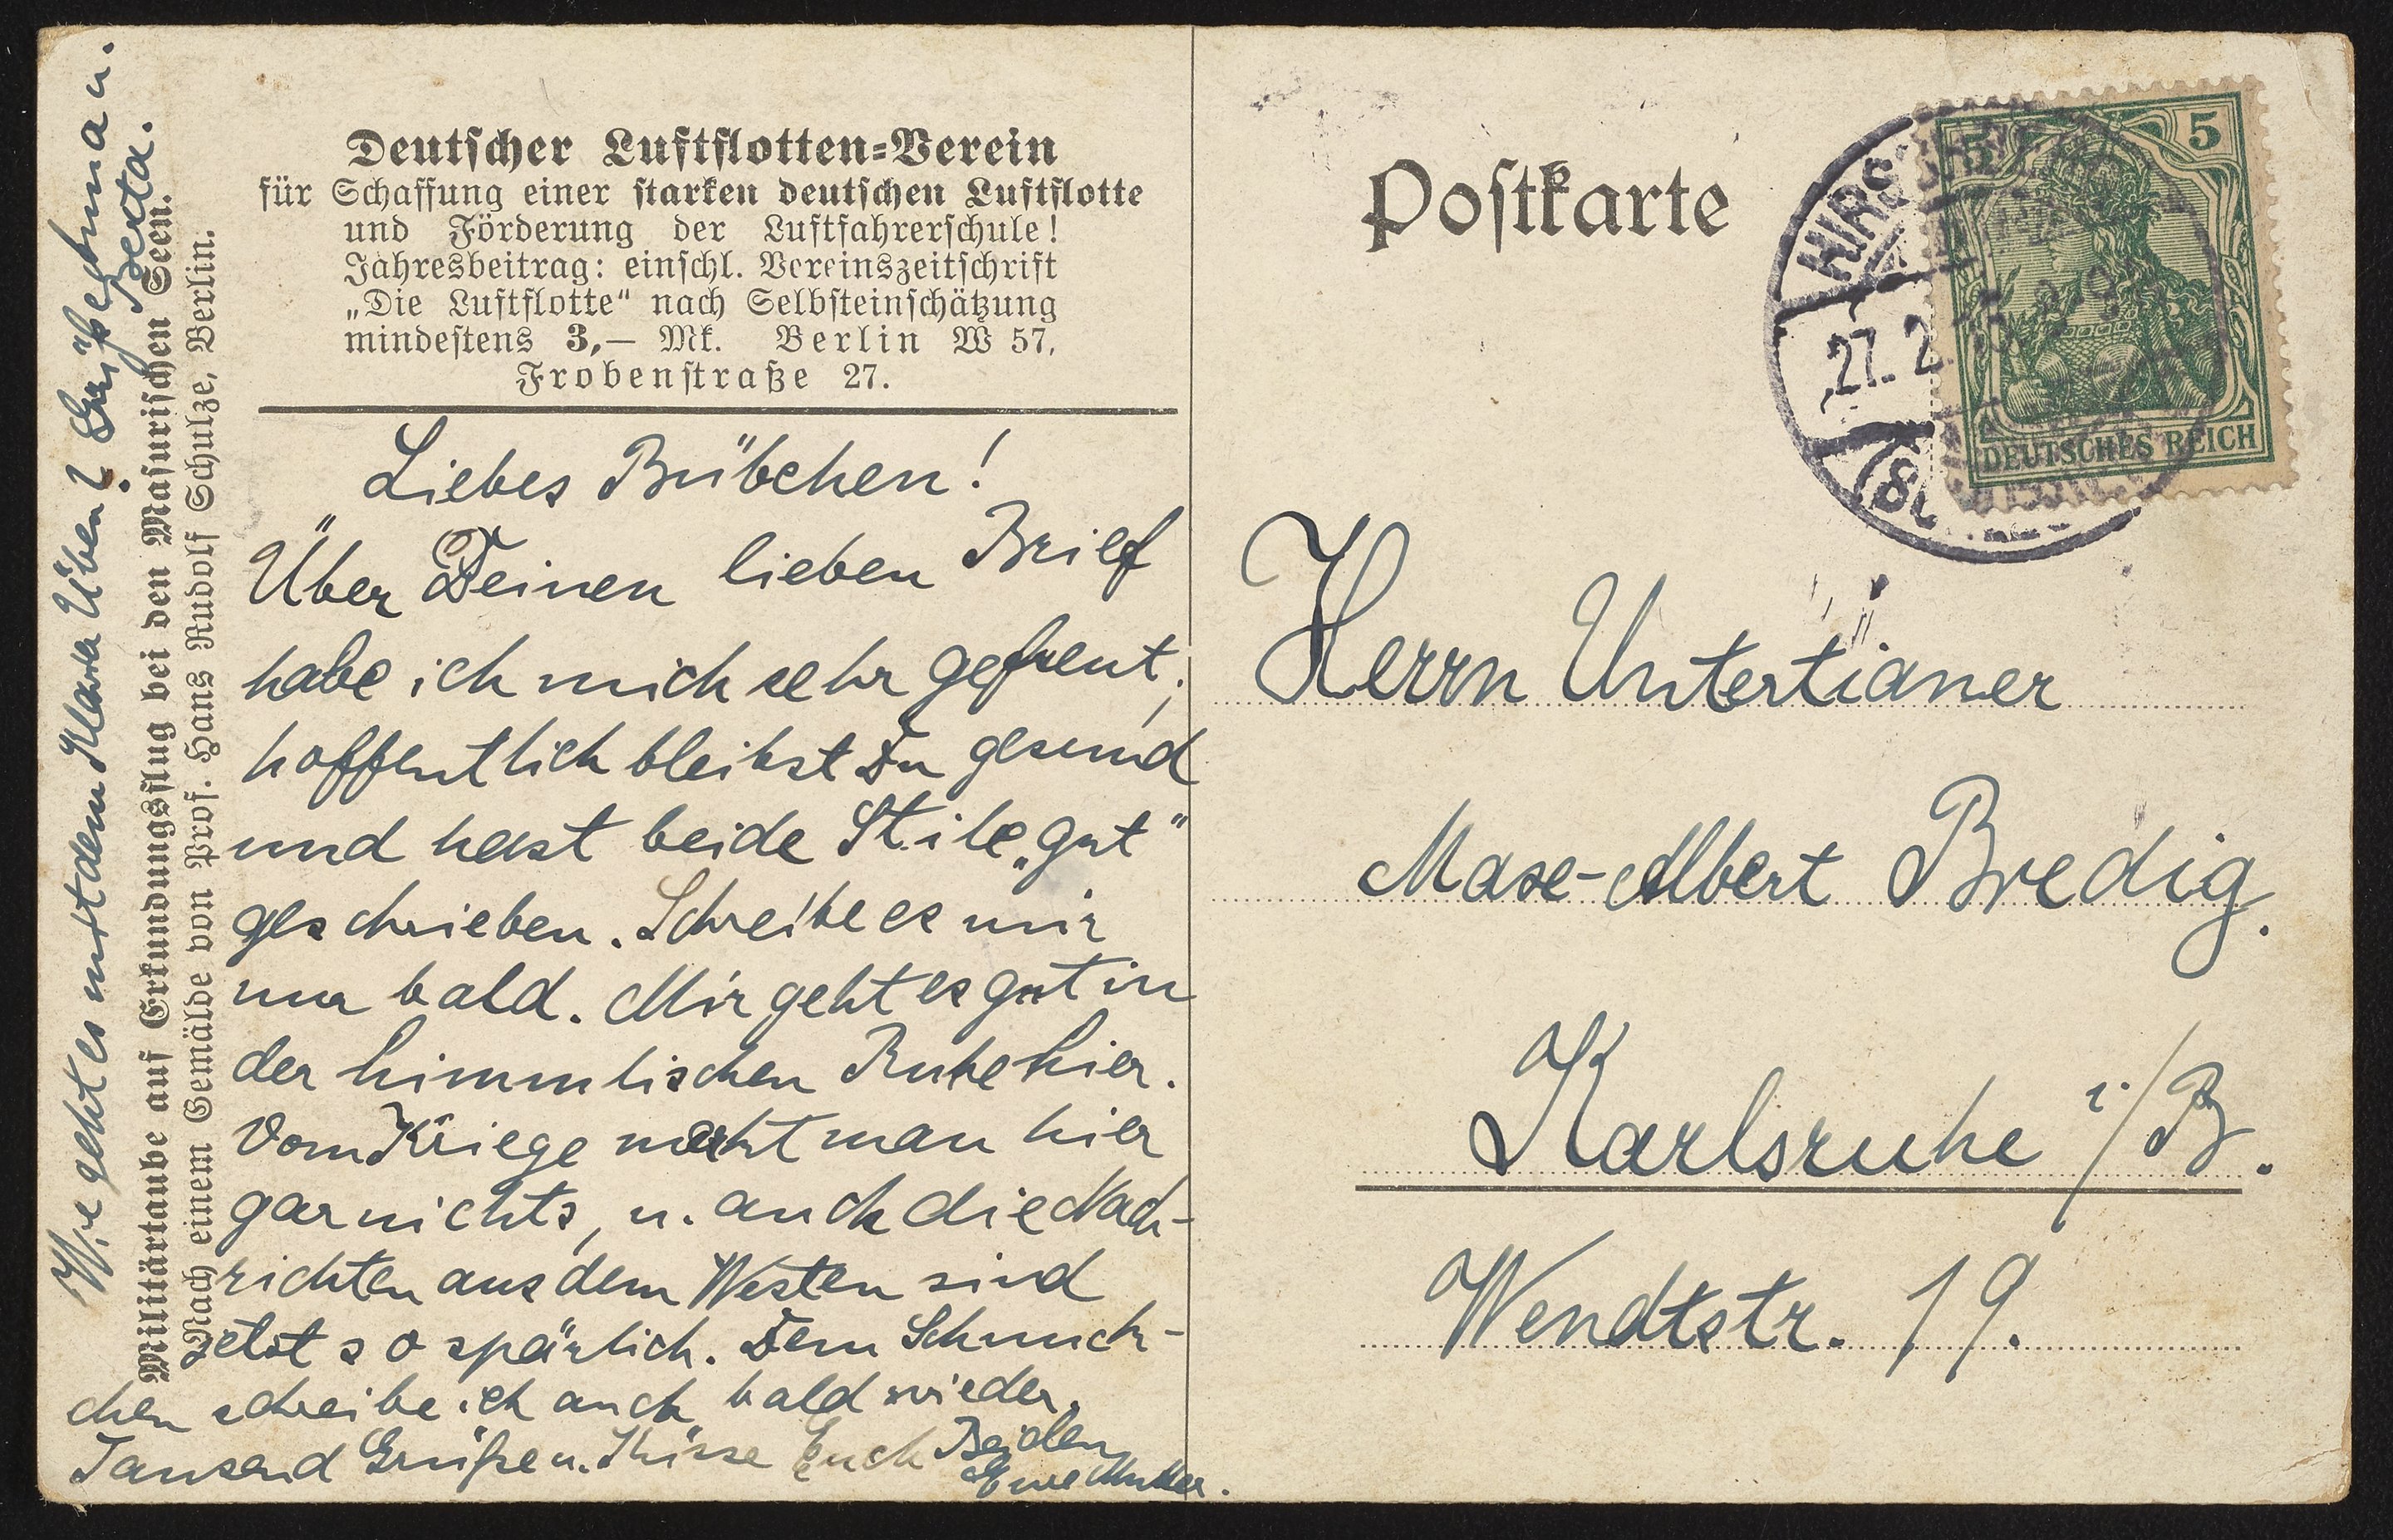 Deutscher Luftflotten=Verein
für Schaffung einer starken deutschen Luftflotte
und Förderung der Luftfahrerschule!
Jahresbeitrag: einschl. Vereinszeitschrift
„Die Luftflotte“ nach Selbsteinschätzung
mindestens 3,— Mk. Berlin W 57,
Frobenstraße 27.
Liebes Bübchen!
Über Deinen lieben Brief
habe ich mich sehr gefreut;
hoffentlich bleibst Du gesund
und hast beide Stile „gut“
geschrieben. Schreibe es mir
nur bald. Mir geht es gut in
der himmlischen Ruhe hier.
Vom Kriege merkt man hier
gar nichts, u. auch die Nach-
richten aus dem Westen sind
jetzt so spärlich. Dem Schnuck-
chen schreibe ich auch bald wieder.
Tausend Grüße u. Küsse Euch Beiden
Eure Mutter.
Wie geht es mit dem Klavier Üben? Grüße Etna u.
Berta.
Militärtaube auf Erkundungsflug bei den Masurischen Seen.
Nach einem Gemälde von Prof. Hans Rudolf Schulze, Berlin.
Postkarte
HIRS
27. 2.
5 5
DEUTSCHES REICH
Herrn Untertianer
Max-Albert Bredig.
Karlsruhe i/B.
Wendtstr. 19.